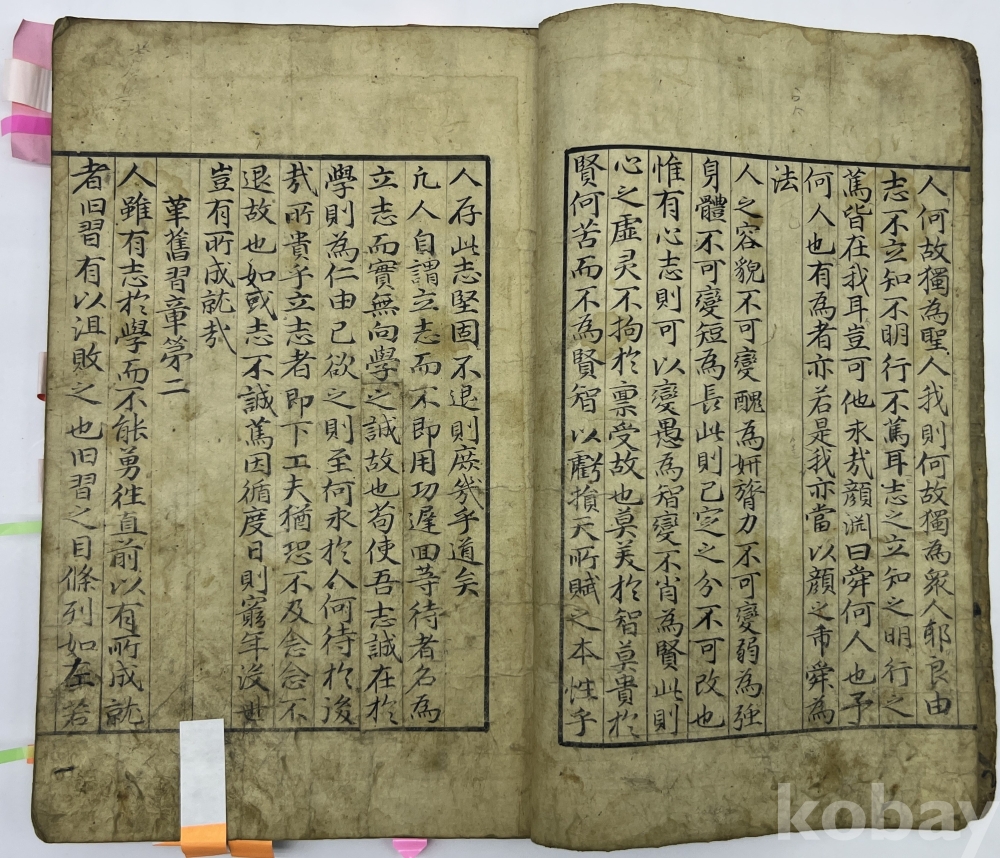 人何故獨為聖人我則何故獨為衆人耶良由
志不立知不明行不篤耳志之立知之明行之
篤皆在我耳豈可他求哉顔淵曰舜何人也予
何人也有為者亦若是我亦當以顔之希舜為
法
人之容貌不可變醜為妍膂力不可變弱為強
身體不可變短為長此則已定之分不可改也
惟有心志則可以變愚為智變不肖為賢此則
心之虛灵不拘於禀受故也莫美於智莫貴於
賢何苦而不為賢智以虧損天所賦之本性乎
人存此志堅固不退則庶幾乎道矣
凢人自謂立志而不即用功遲回等待者名為
立志而實無向學之誠故也苟使吾志誠在於
學則為仁由己欲之則至何求於人何待於後
哉所貴乎立志者即下工夫猶恐不及念念不
退故也如或志不誠篤因循度日則窮年没世
豈有所成就哉
革舊習章第二
人雖有志於學而不能勇徃直前以有所成就
者旧習有以沮敗之也旧習之目條列如左若
kobay